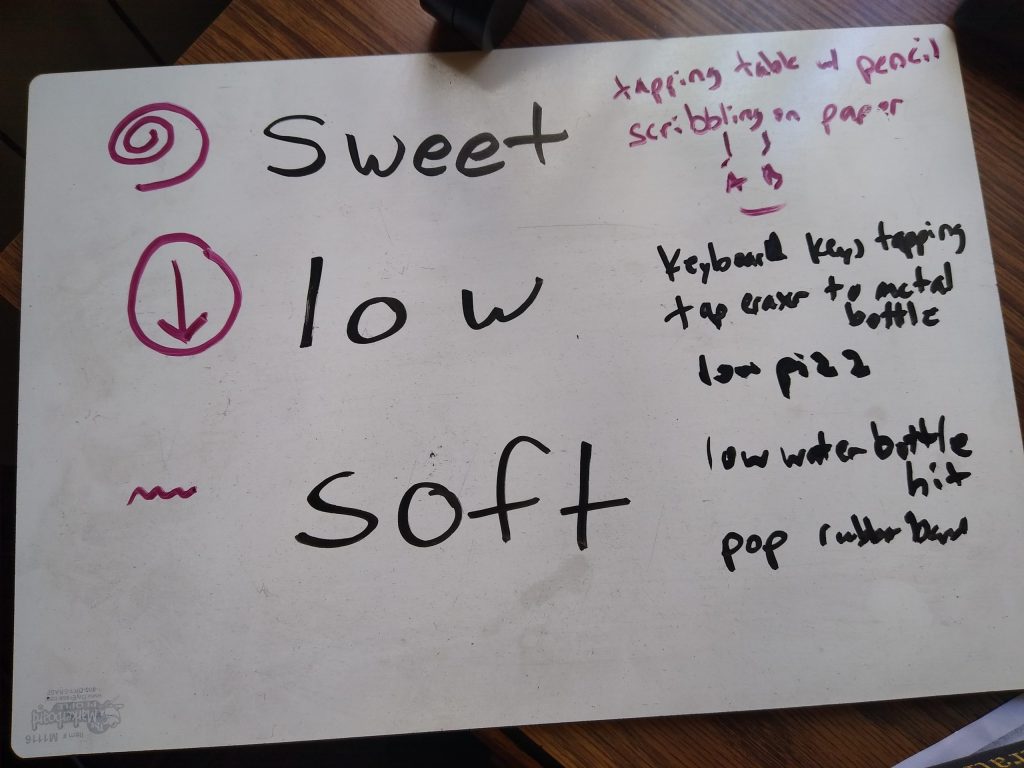 sweet
tapping table w pencil
scribbling on paper
A B
low
keyboard keys tapping
tap eraser to metal
bottle
low pizz
soft
low water bottle
hit
pop rubber band
Markerboard
PEOPLE
Item # M11116